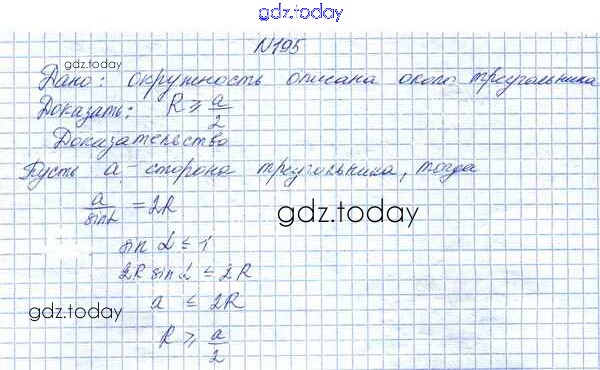 gdz.today
N195
gdz.today
Дано: окружность описана около треугольника
Доказать: R ≥ a/2
Доказательство
Пусть a - сторона треугольника, тогда
a/sinα = 2R
gdz.today
sin α ≤ 1
2R sin α ≤ 2R
a ≤ 2R
gdz.today
R ≥ a/2